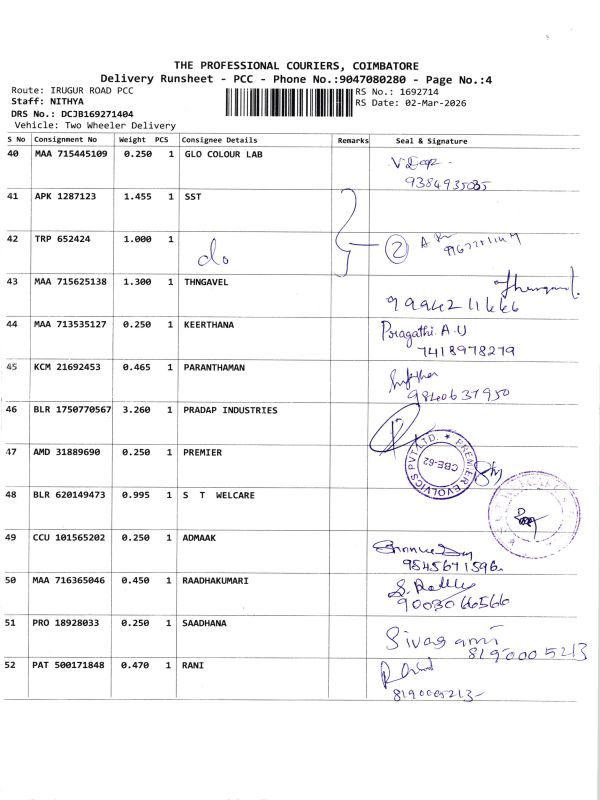 THE PROFESSIONAL COURIERS, COIMBATORE
Delivery Runsheet - PCC - Phone No.:9047080280 - Page No.:4
Route: IRUGUR ROAD PCC
RS No.: 1692714
Staff: NITHYA
RS Date: 02-Mar-2026
DRS No.: DCJB169271404
Vehicle: Two Wheeler Delivery
S No Consignment No Weight PCS Consignee Details Remarks Seal & Signature
40 MAA 715445109 0.250 1 GLO COLOUR LAB
41 APK 1287123 1.455 1 SST
42 TRP 652424 1.000 1 do
2
43 MAA 715625138 1.300 1 THNGAVEL
99942 11666
44 MAA 713535127 0.250 1 KEERTHANA Pragathi. A.U
7418978279
45 KCM 21692453 0.465 1 PARANTHAMAN
9840637950
46 BLR 1750770567 3.260 1 PRADAP INDUSTRIES
47 AMD 31889690 0.250 1 PREMIER
PREMIER EVOLVICS PVT.LTD. ★
CBE-62
48 BLR 620149473 0.995 1 S T WELCARE
49 CCU 101565202 0.250 1 ADMAAK
9545671596
50 MAA 716365046 0.450 1 RAADHAKUMARI
9003066566
51 PRO 18928033 0.250 1 SAADHANA Sivagami
8190005213
52 PAT 500171848 0.470 1 RANI
8190005213